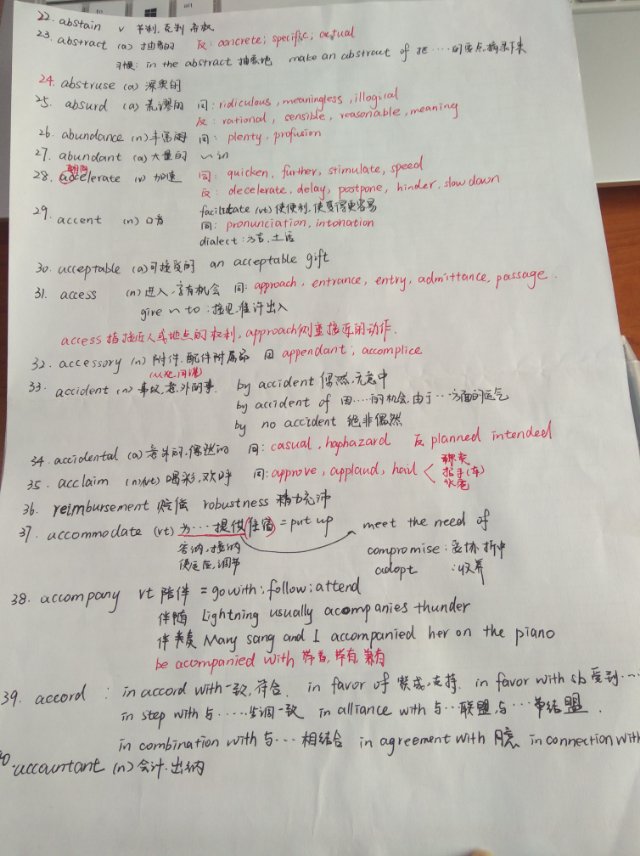 22. abstain v 节制, 克制
23. abstract (a) 抽象的 反: concrete; specific; actual
习惯: in the abstract 抽象地 make an abstract of 把……的要点摘录下来
24. abstruse (a) 深奥的
25. absurd (a) 荒谬的 同: ridiculous, meaningless, illogical
反: rational, sensible, reasonable, meaning
26. abundance (n) 丰富 同: plenty, profusion
27. abundant (a) 大量的 ~ in
28. accelerate (v) 加速 同: quicken, further, stimulate, speed
反: decelerate, delay, postpone, hinder, slow down
facilitate (vt) 使便利, 使变得更容易
29. accent (n) 口音 同: pronunciation, intonation
dialect: 方言, 土话
30. acceptable (a) 可接受的 an acceptable gift
31. access (n) 进入, 享有机会 同: approach, entrance, entry, admittance, passage.
give ~ to: 接见, 准许出入
access 指接近人或地点的权利, approach 侧重接近的动作.
32. accessory (n) 附件, 配件附属品 同 appendant; accomplice
33. accident (n) 事故, 意外的事 by accident 偶然, 无意中
by accident of 因……的机会, 由于…方面的运气
by no accident 绝非偶然
34. accidental (a) 意外的, 偶然的 同: casual, haphazard 反 planned intended
35. acclaim (n/vt) 喝彩, 欢呼 同: approve, applaud, hail
36. reimbursement 赔偿 robustness 精力充沛
37. accommodate (vt) 为…提供住宿 = put up meet the need of
容纳, 接纳 compromise: 妥协 折中
使适应, 调节 adopt : 收养
38. accompany vt 陪伴 = go with; follow; attend
伴随 Lightning usually acompanies thunder
伴奏 Mary sang and I accompanied her on the piano
be acompanied with 带着, 带有, 兼有
39. accord : in accord with 一致, 符合. in favor of 赞成, 支持. in favor with sb 受到…
in step with 与……步调一致 in alliance with 与…联盟, 与…结盟.
in combination with 与…相结合 in agreement with 同意 in connection with
40. accountant (n) 会计. 出纳